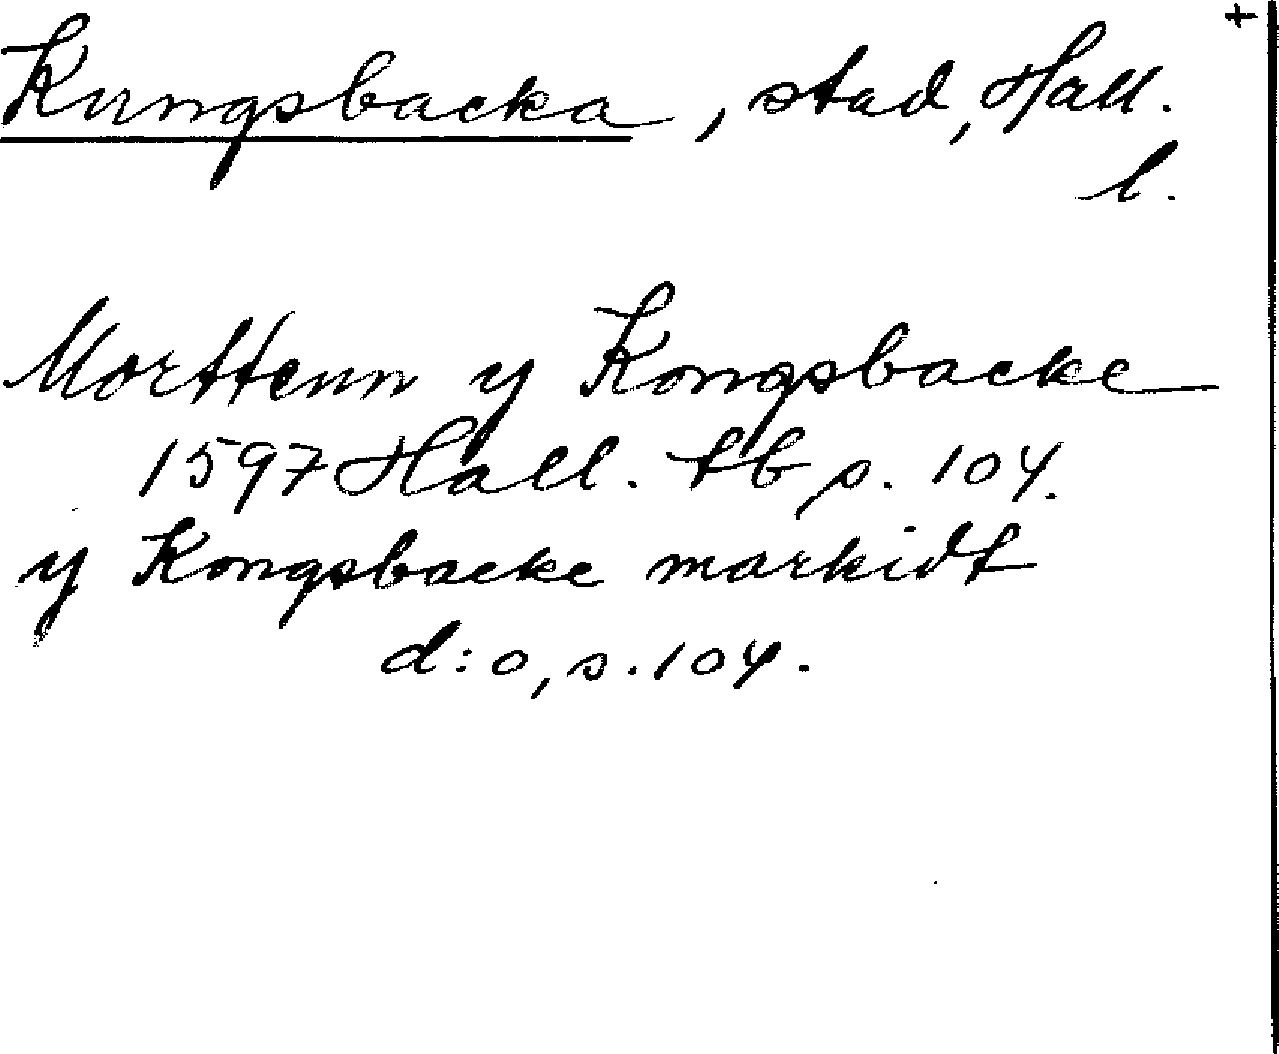 +
Kungsbacka, stad, Hall.
l.
Morttenn y Kongsbacke
1597 Hall. tb s. 104.
y Kongsbacke markidt
d:o, s. 104.